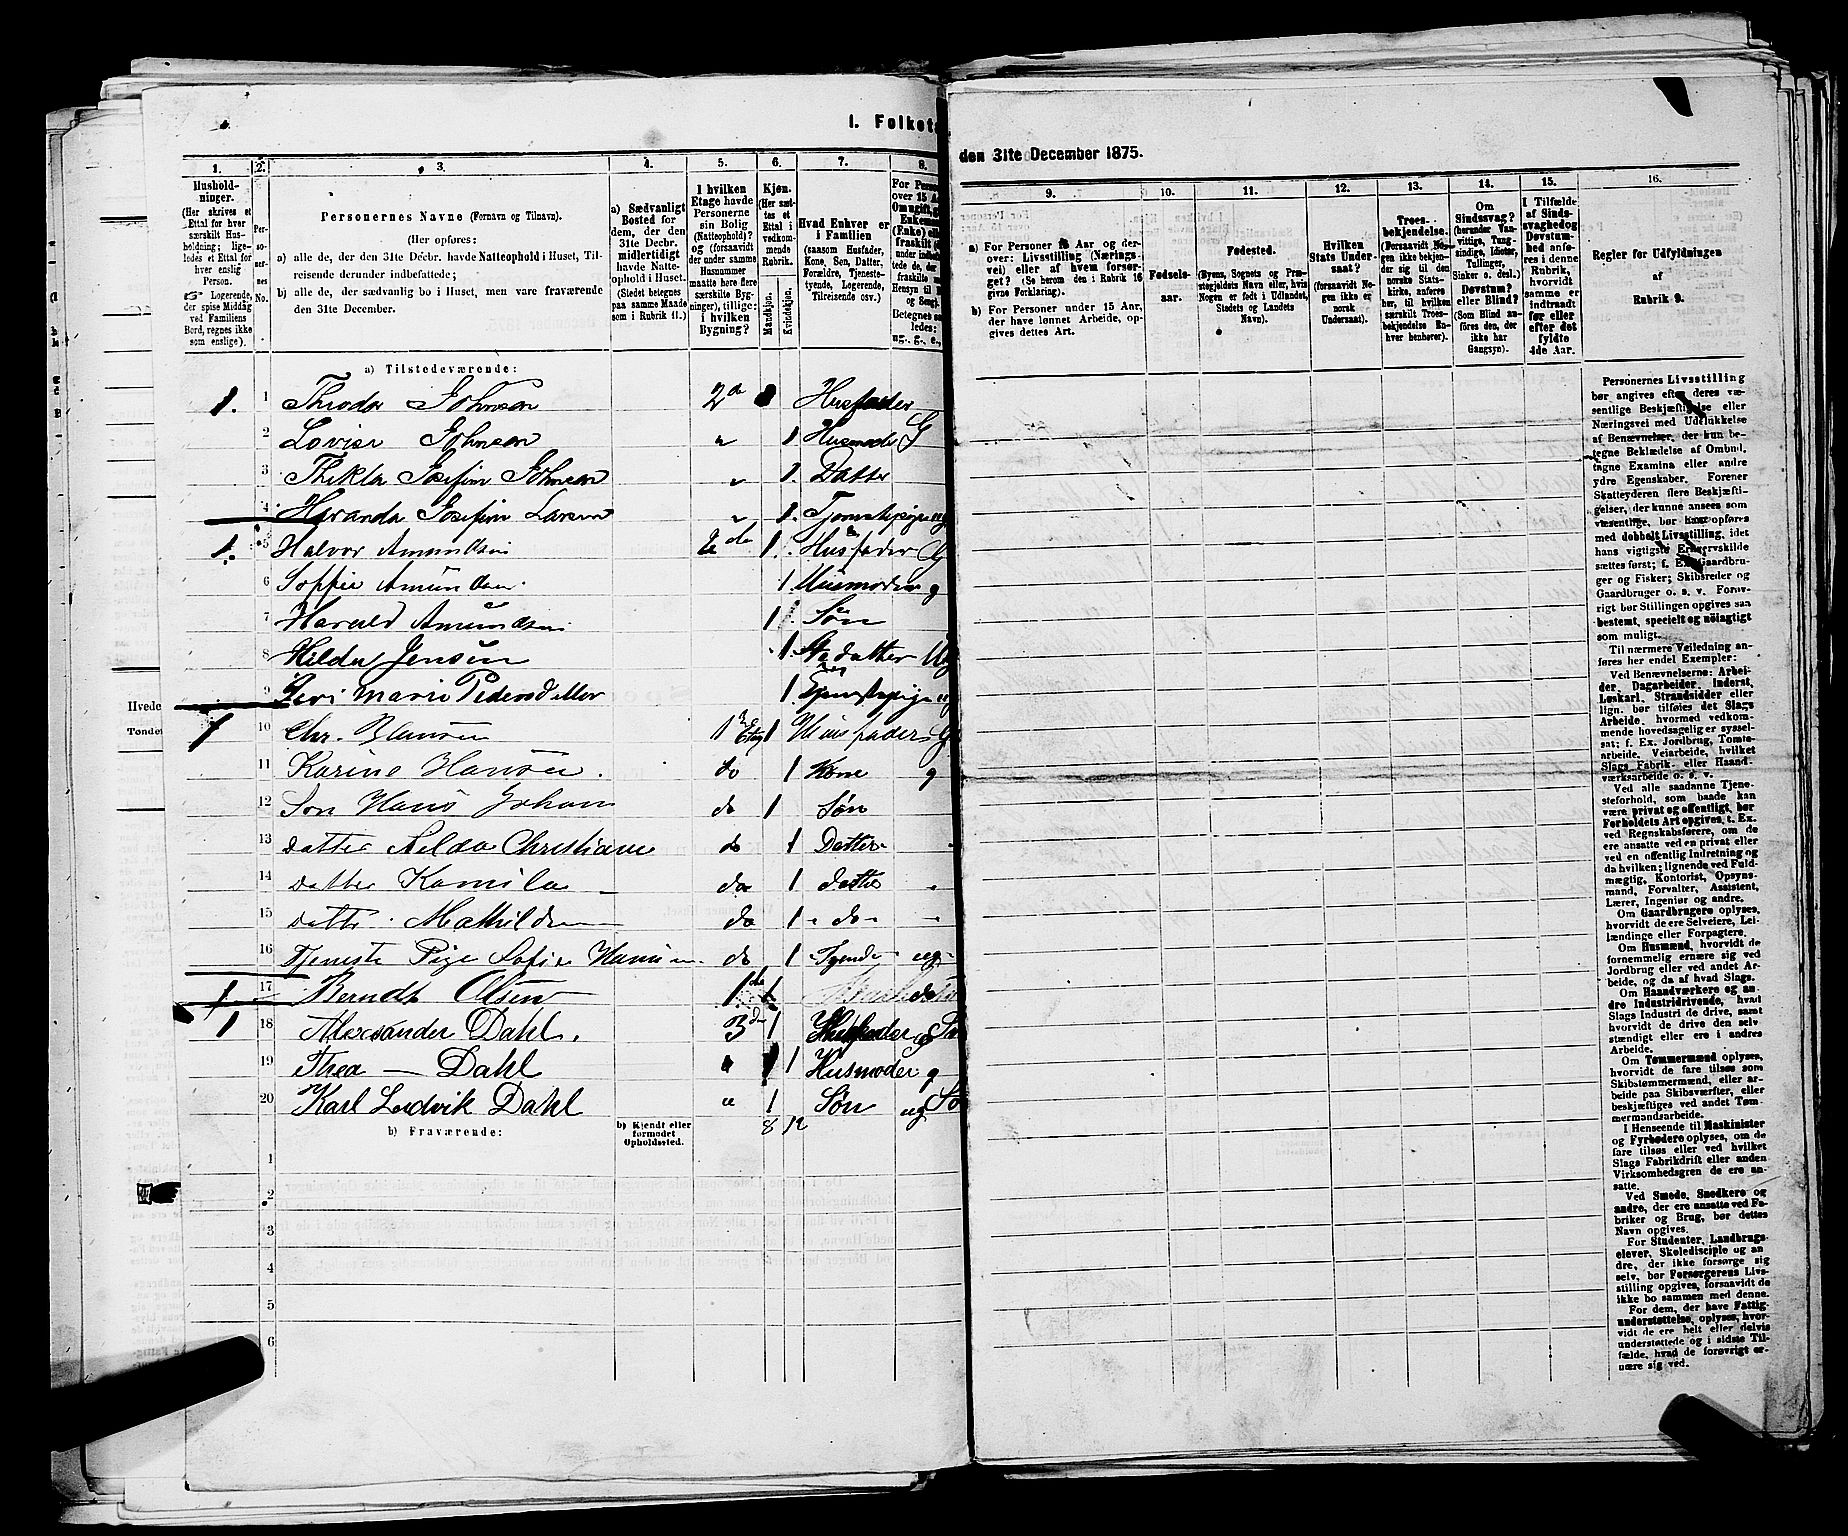 I. Folket
den 31te December 1875.
1. 2. 3. 4. 5. 6. 7. 8.
Hushold-
ninger.
(Her skrives et
Ettal for hver
særskilt Hus-
holdning; lige-
ledes et Ettal for
hver enslig
Person.
☞ Logerende,
der spise Middag
ved Familiens
Bord, regnes ikke
som enslige).
Per-
so-
ner-
nes
No.
Personernes Navne (Fornavn og Tilnavn).
(Her opføres:
a) alle de, der den 31te Decbr. havde Natteophold i Huset, Til-
reisende derunder indbefattede;
b) alle de, der sædvanlig bo i Huset, men vare fraværende
den 31te December.
a) Sædvanligt
Bosted for
dem, der den
31te Decbr.
midlertidigt
havde Natte-
ophold i Huset.
(Stedet betegnes
paa samme Maade
som i Rubrik 11.)
I hvilken
Etage havde
Personerne
sin Bolig
(Natteophold)?
og (forsaavidt
der under samme
Husnummer
maatte høre flere
særskilte Byg-
ninger), tillige:
i hvilken
Bygning?
Kjøn.
(Her sæt-
tes et
Ettal i
vedkom-
mende
Rubrik.
Mandkjøn.
Kvindekjøn.
Hvad Enhver er
i Familien
(saasom Husfader,
Kone, Søn, Datter,
Forældre, Tjeneste-
tyende, Logerende,
Tilreisende osv.)
For Perso
over 15 A
Om ugift, g
Enkema
(Enke) elle
fraskilt
under indbe
tede de, der
fraskilte
Hensyn til
og Seng
Betegnes sa
ledes:
ug., g., e.,
a) Tilstedeværende:
1. 1 Theodor Johnsen 2de Husfader
2 Lovise Johnsen 1 Husmode G
3 Thekla Josefine Johnsen 1. Datter
4 Josefine Larsen 1. ug
1. 5 Halvor Amundsen 2de 1. Husfader
6 Soffie Amundsen 1 Husmoder g
7 Harald Amundsen 1 Søn
8 Hilda Jensen 1. datter Ug
9 Marie Pedersdatter 1. ug
1 10 Chr. Hansen 1 Etg 1 Huusfader
11 Karine Hansen. do 1 Kone g
12 Søn Hans Johan do 1 Søn
13 Datter Hilda Christiane do 1 Datter
14 Datter Kamila do 1 datter
15 datter Mathilde do 1 do
16 Tjeneste Pige Sofie Hansen do 1 Tyende ug
1 17 Berndt Olsen 1de 1
1 18 Alexsander Dahl. 3de 1 Husfader g
19 Thea — Dahl 1 Husmoder g
20 Karl Ludvik Dahl 1 Søn ug
8 12
b) Fraværende:
b) Kjendt eller
formodet
Opholdssted.
1
2
3
4
5
6
Hvede
Tønder
9. 10. 11. 12. 13. 14. 15. 16.
a) For Personer over 15 Aar og der-
over: Livsstilling (Nærings-
vei) eller af hvem forsør-
get? (Se herom den i Rubrik 16
givne Forklaring).
b) For Personer under 15 Aar,
der have lønnet Arbeide, op-
gives dettes Art.
Fødsels-
aar.
Fødested.
(Byens, Sognets og Præ-
stegjeldets Navn, eller, hvis
Nogen er født i Udlandet,
Stedets og Landets
Navn).
Hvilken
Stats Under-
saat?
(forsaavidt No-
gen ikke er
norsk
Undersaat).
Troes-
bekjendelse.
(Forsaavidt No-
gen ikke bekjen-
der sig til den
norske Stats-
kirke, anføres
her, til hvilken
særskilt Troes-
bekjendelse En-
hver henhører).
Om
Sindssvag?
(herunder Van-
vittige, Tung-
sindige, Idioter,
Tullinger,
Sinker o. desl.)
Døvstum?
eller Blind?
(Som Blind an-
føres den, der
ikke har
Gangsyn).
I Tilfælde
af Sinds-
svaghed og
Døvstum-
hed anfø-
res i denne
Rubrik,
hvorvidt
samme er
indtraadt
før eller
efter det
fyldte
4de Aar.
Regler for Udfyldningen
af
Rubrik 9.
Personernes Livsstilling
bør angives efter deres væ-
sentlige Beskjæftigelse eller
Næringsvei med Udelukkelse
af Benævnelser, der kun be-
tegne Beklædelse af Ombud,
tagne Examina eller andre
ydre Egenskaber. Forener
Skatteyderen flere Beskjæfti-
gelser, der kunne ansees som
væsentlige, bør han opføres
med dobbelt Livsstilling, idet
hans vigtigste Erhvervskilde
sættes først; f. Ex. Gaardbru-
ger og Fisker; Skibsreder og
Gaardbruger o. s. v. Forøv-
rigt bør Stillingen opgives saa
bestemt, specielt og nøiagtigt
som muligt.
Til nærmere Veiledning an-
føres her endel Exempler:
Ved Benævnelserne: Arbei-
der, Dagarbeider, Inderst,
Løskarl, Strandsidder eller
lign. bør tilføies det Slags
Arbeide, hvormed vedkom-
mende hovedsagelig er syssel-
sat; f. Ex. Jordbrug, Tomte-
arbeide, Veiarbeide, hvilket
Slags Fabrik- eller Haand-
værksarbeide o. s. v.
Ved alle saadanne Tjene-
steforhold, som baade kan
være privat og offentligt, bør
Forholdets Art opgives, t. Ex.
ved Regnskabsførere, om de
ere ansatte ved en privat eller
ved en offentlig Indretning og
da hvilken; lignende ved Fuld-
mægtig, Kontorist, Opsyns-
mand, Forvalter, Assistent,
Lærer, Ingeniør og andre.
Om Gaardbrugere oplyses,
hvorvidt de ere Selveiere, Lei-
lændinge eller Forpagtere.
Om Husmænd, hvorvidt de
fornemmelig ernære sig ved
Jordbrug eller ved andet Ar-
beide, og da af hvad Slags.
Om Haandværkere og an-
dre Industridrivende, hvad
Slags Industri de drive, samt
hvorvidt de drive den selv-
stændigt eller ere i andres
Arbeide.
Om Tømmermænd oplyses,
hvorvidt de fare tilsøs som
Skibstømmermænd, eller ar-
beide paa Skibsværfter, eller
beskjæftiges ved andet Tøm-
mermandsarbeide.
I Henseende til Maskinister
og Fyrbødere oplyses, om de
fare tilsøs eller ved hvilket
Slags Fabrikdrift eller anden
Virksomhedsgren de ere an-
satte.
Ved Smede, Snedkere og
andre, der ere ansatte ved Fa-
briker og Brug, bør dettes
Navn opgives.
For Studenter, Landbrugs-
elever, Skoledisciple og an-
dre, der ikke forsørge sig
selv, bør Forsørgerens Livs-
stilling opgives, forsaavidt de
ikke bo sammen med denne.
For dem, der have Fattig-
understøttelse, oplyses, hvor-
vidt de ere helt eller delvis
understøttede og i sidste Til-
fælde, hvad de forøvrigt er-
nære sig ved.